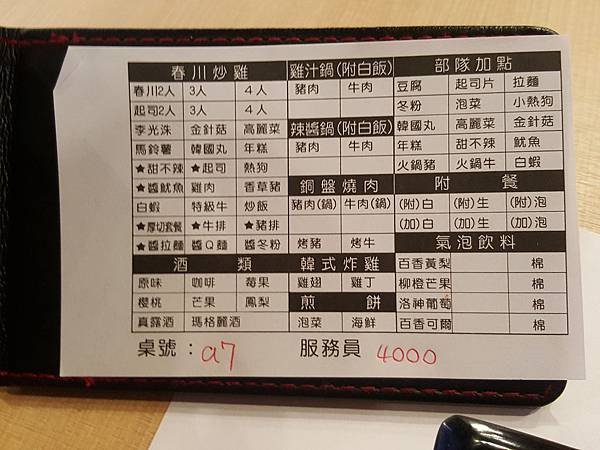 春川炒雞
春川2人 3人 4人
起司2人 3人 4人
李光洙 金針菇 高麗菜
馬鈴薯 韓國丸 年糕
★甜不辣 ★起司 熱狗
★醬魷魚 雞肉 香草豬
白蝦 特級牛 炒飯
★厚切套餐 ★牛排 ★豬排
★醬拉麵 醬Q麵 醬冬粉
酒類
原味 咖啡 莓果
櫻桃 芒果 鳳梨
真露酒 瑪格麗酒
雞汁鍋(附白飯)
豬肉 牛肉
辣醬鍋(附白飯)
豬肉 牛肉
銅盤燒肉
豬肉(鍋) 牛肉(鍋)
烤豬 烤牛
韓式炸雞
雞翅 雞丁
煎餅
泡菜 海鮮
部隊加點
豆腐 起司片 拉麵
冬粉 泡菜 小熱狗
韓國丸 高麗菜 金針菇
年糕 甜不辣 魷魚
火鍋豬 火鍋牛 白蝦
附餐
(附)白 (附)生 (附)泡
(加)白 (加)生 (加)泡
氣泡飲料
百香黃梨 棉
柳橙芒果 棉
洛神葡萄 棉
百香可爾 棉
桌號：a7 服務員 4000